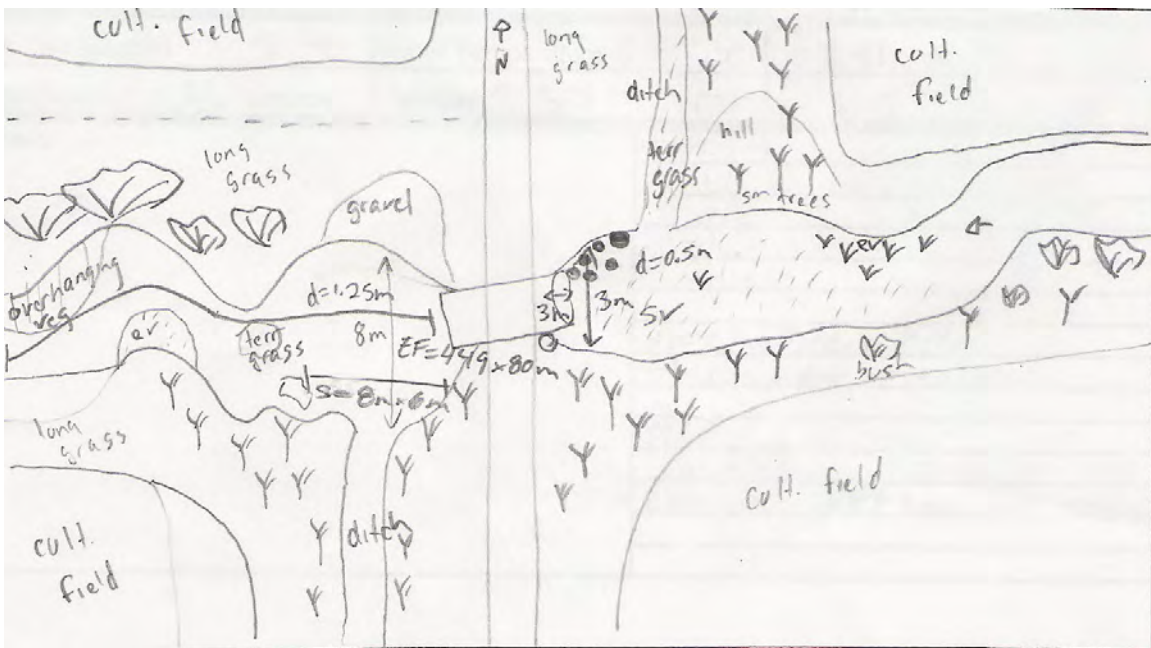 cult. field
N
long
grass
ditch
cult.
field
hill
terr
grass
sm trees
long
grass
gravel
overhanging
veg
d=1.25m
8m
ev
terr
grass
3m
d=0.5m
3m
sv
ev
EF=449 x 80m
S=8m x 6m
bush
long
grass
cult.
field
ditch
cult. field